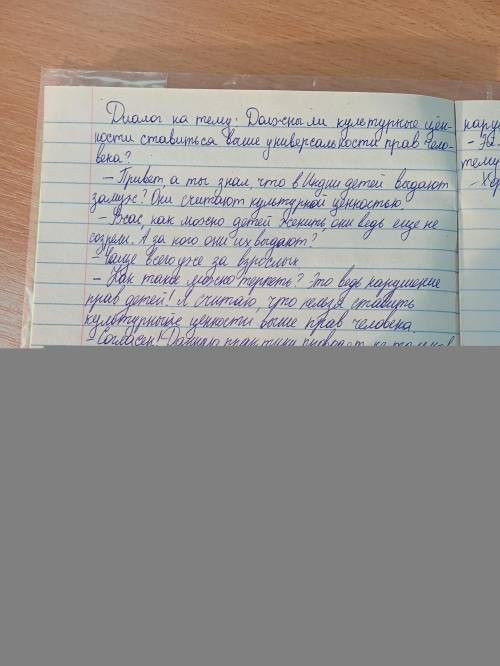 Диалог на тему: Должны ли культурные цен-
ности ставиться выше универсальности прав чело-
века?
– Привет, а ты знал, что в Индии детей выдают
замуж? Они считают культурной ценностью.
– Ужас, как можно детей женить, они ведь ещё не
созрели. А за кого они их выдают?
– Чаще всего уже за взрослых
– Как такое можно терпеть? Это ведь нарушение
прав детей! Я считаю, что нельзя ставить
культурные ценности выше прав человека.
– Согласен! Данную практику
нару
–
тему
– Хо